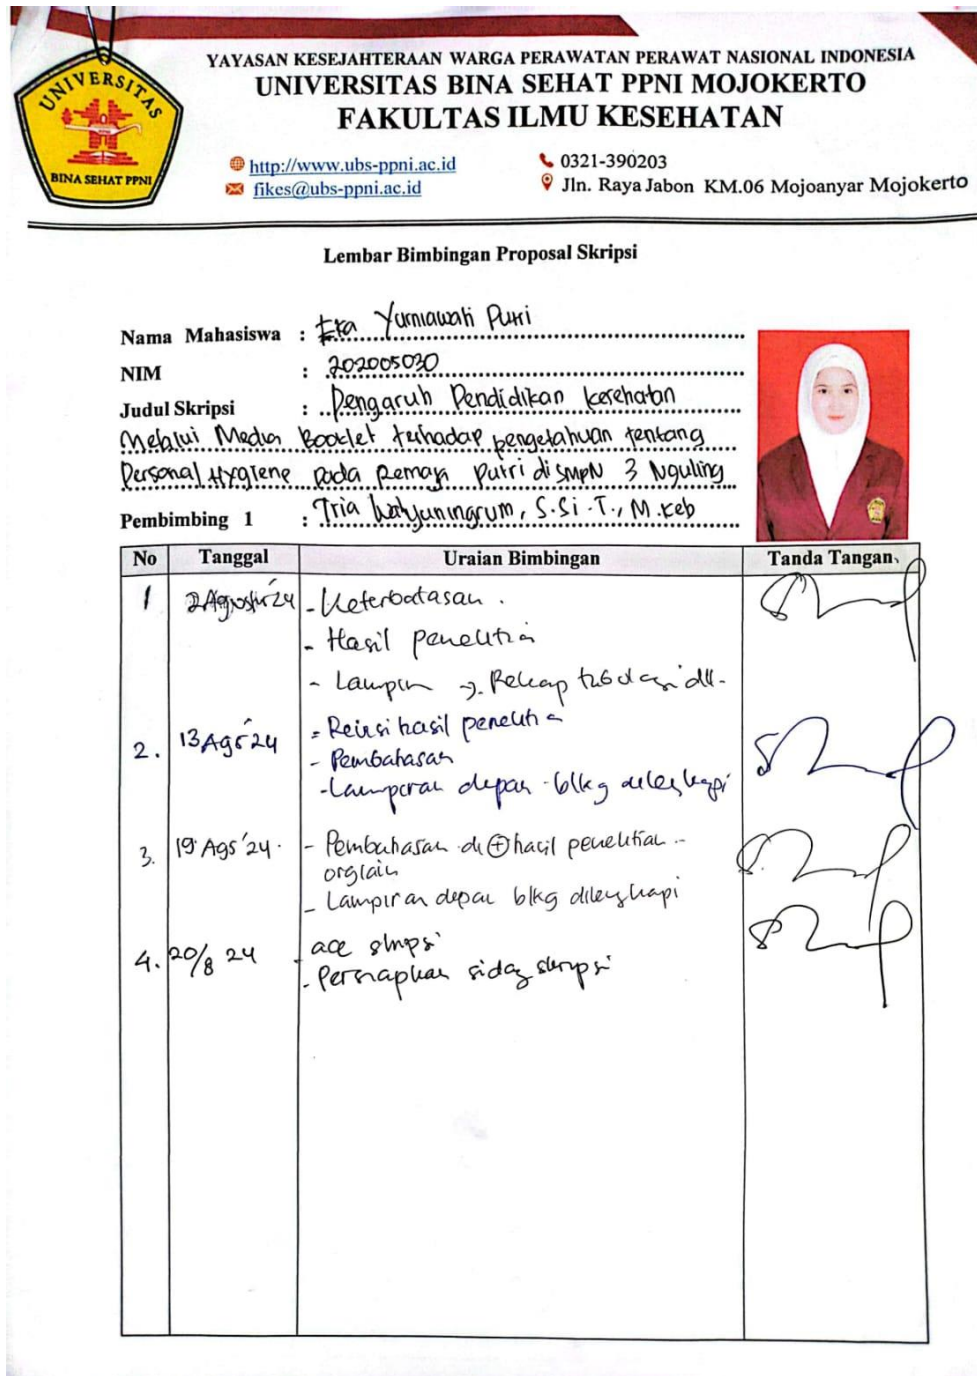 YAYASAN KESEJAHTERAAN WARGA PERAWATAN PERAWAT NASIONAL INDONESIA
UNIVERSITAS BINA SEHAT PPNI MOJOKERTO
FAKULTAS ILMU KESEHATAN
UNIVERSITAS
BINA SEHAT PPNI
http://www.ubs-ppni.ac.id
0321-390203
fikes@ubs-ppni.ac.id
Jln. Raya Jabon KM.06 Mojoanyar Mojokerto
Lembar Bimbingan Proposal Skripsi
Nama Mahasiswa : Eka Yurniawati Putri
NIM : 202005030
Judul Skripsi : Pengaruh Pendidikan kesehatan
Melalui Media Booklet terhadap pengetahuan tentang
Personal Hygiene pada Remaja Putri di SMPN 3 Nguling
Pembimbing 1 : Tria Wahyuningrum, S.Si.T., M.Keb
No Tanggal Uraian Bimbingan Tanda Tangan
1 2 Agustus 24 - Keterbatasan.
- Hasil penelitian
- Lampiran → Rekap dll.
2. 13 Ags 24 - Revisi hasil penelitian
- Pembahasan
- Lampiran depan - blkg dilengkapi
3. 19 Ags '24. - Pembahasan di + hasil penelitian
org lain
- Lampiran depan blkg dilengkapi
4. 20/8 24 - acc skripsi
- Persiapkan sidang skripsi